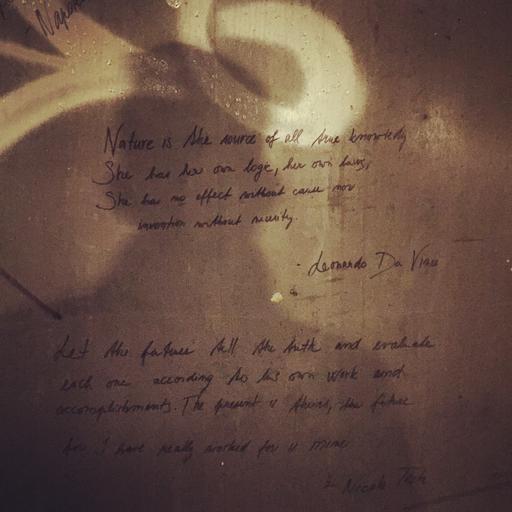 - Napo
Nature is the source of all true knowledg
She has her own logic, her own laws,
She has no effect without cause nor
invention without necessity.
- Leonardo Da Vinci
Let the future tell the truth and evaluate
each one according to his own work and
accomplishments. The present is theirs, the future
for I have really worked for is mine
- Nicola Tesla